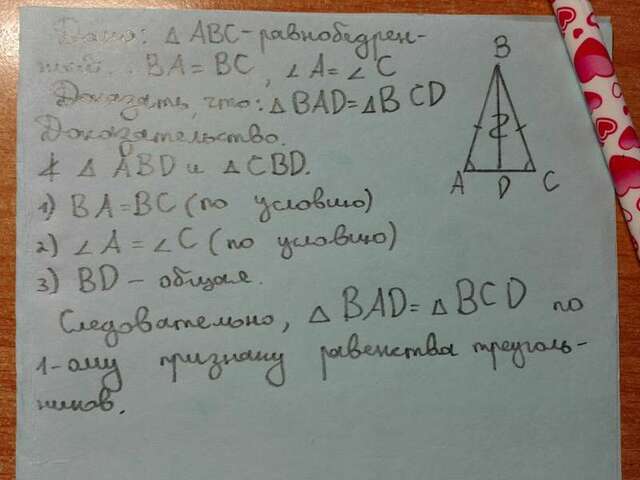 Дано: △ ABC - равнобедрен-
ный. BA = BC, ∠A = ∠C
Доказать, что: △BAD = △BCD
Доказательство.
∡ △ ABD и △CBD.
1) BA = BC (по условию)
2) ∠A = ∠C (по условию)
3) BD - общая.
Следовательно, △ BAD = △ BCD по
1-ому признаку равенства треуголь-
ников.
B
A
D
C